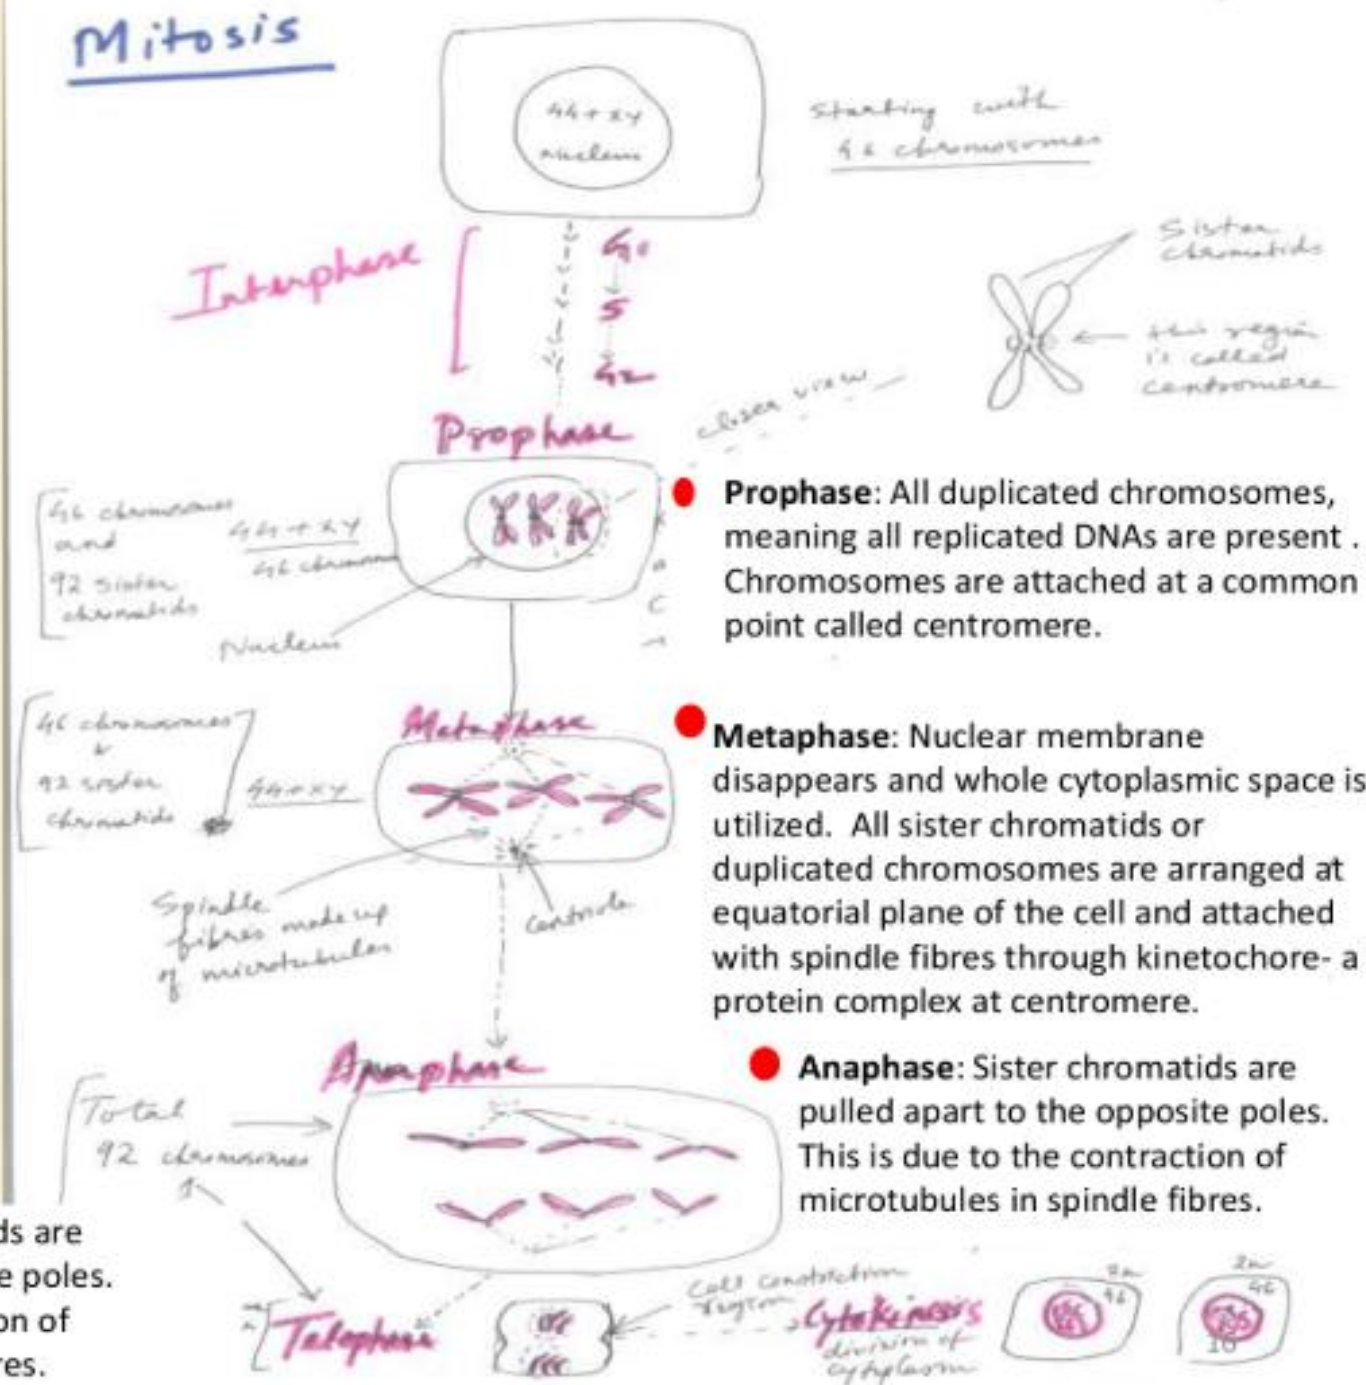 Mitosis
44+xy
nucleus
Starting with
46 chromosomes
Interphase
G1
S
G2
Sister
chromatids
this region
is called
centromere
closer view
Prophase
46 chromosomes
and
92 sister
chromatids
44+xy
46 chromosom
Nucleus
Prophase: All duplicated chromosomes,
meaning all replicated DNAs are present .
Chromosomes are attached at a common
point called centromere.
Metaphase
46 chromosomes
&
92 sister
chromatids
44+xy
Spindle
fibres made up
of microtubules
Centriole
Metaphase: Nuclear membrane
disappears and whole cytoplasmic space is
utilized. All sister chromatids or
duplicated chromosomes are arranged at
equatorial plane of the cell and attached
with spindle fibres through kinetochore- a
protein complex at centromere.
Anaphase
Total
92 chromosomes
Anaphase: Sister chromatids are
pulled apart to the opposite poles.
This is due to the contraction of
microtubules in spindle fibres.
ds are
e poles.
on of
res.
Telophase
Cell constriction
region
Cytokinesis
division of
cytoplasm
2n
46
2n
46
10